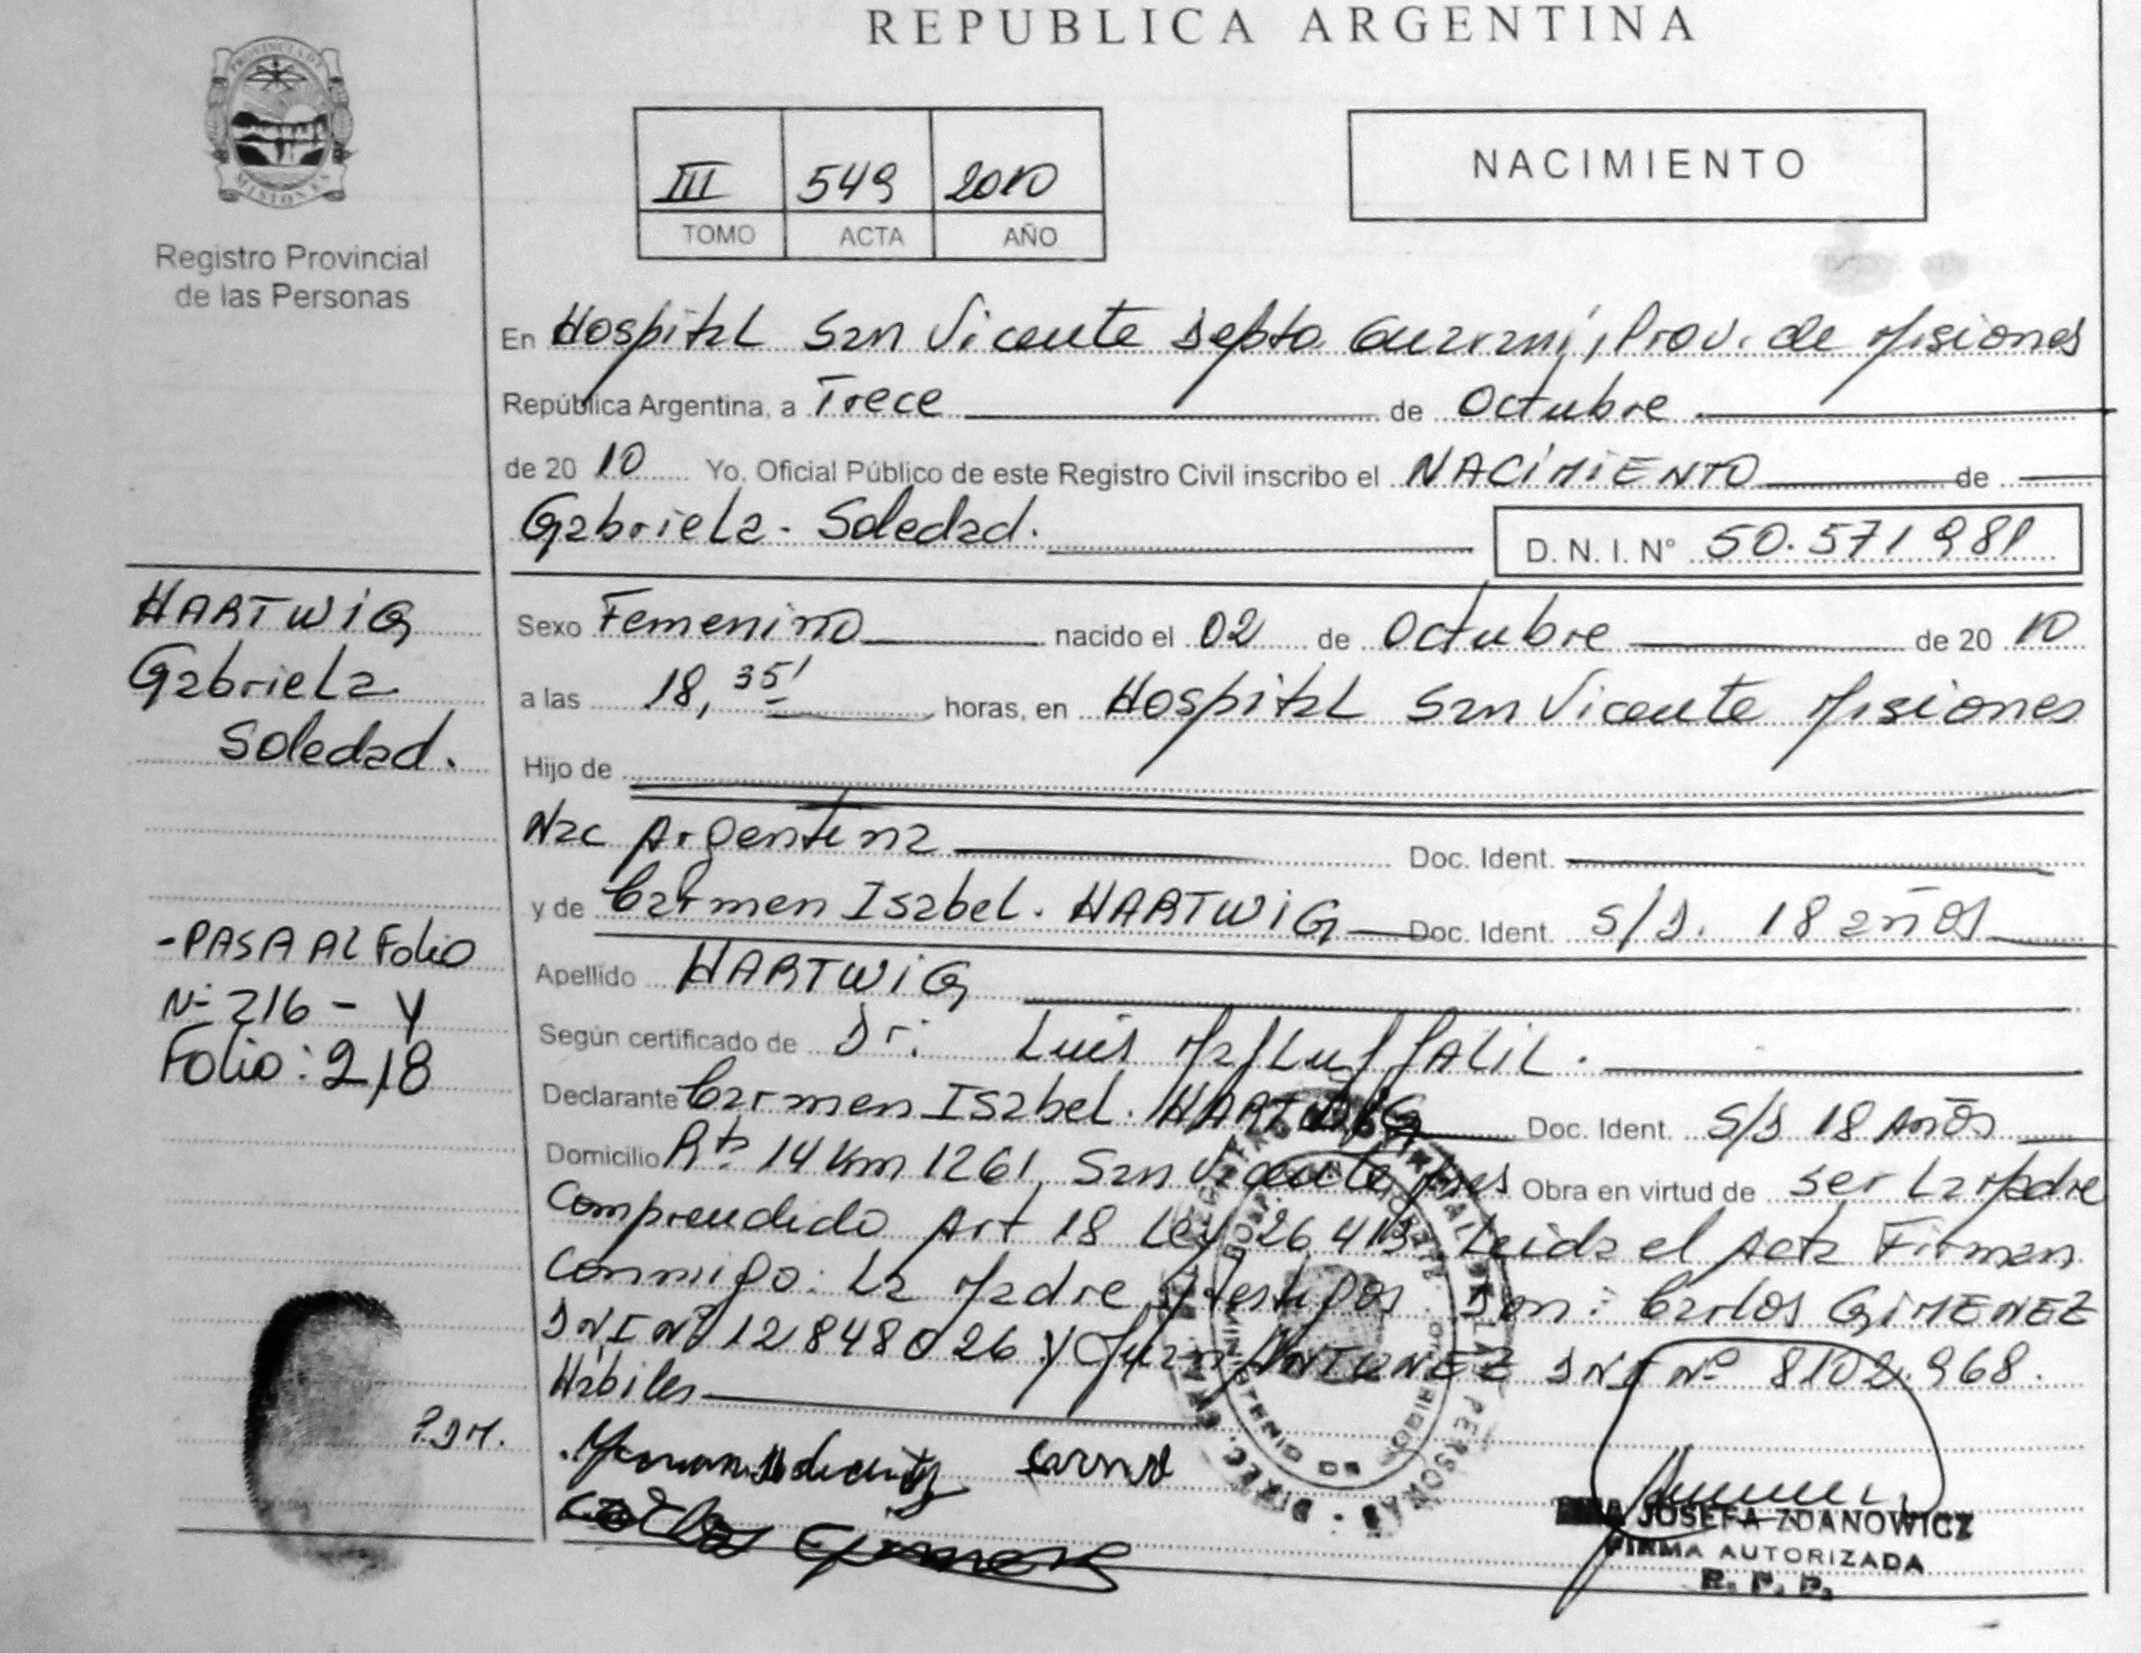 REPUBLICA ARGENTINA
PROVINCIA DE
MISIONES
Registro Provincial
de las Personas
III 549 2010
TOMO ACTA AÑO
NACIMIENTO
En Hospital San Vicente Depto. Guarani, Prov. de Misiones
República Argentina, a Trece de Octubre
de 20 10 Yo, Oficial Público de este Registro Civil inscribo el NACIMIENTO de
Gabriela - Soledad.
D. N. I. N° 50.571981
HARTWIG
Gabriela
Soledad.
Sexo Femenino nacido el 02 de Octubre de 20 10
a las 18,35' horas, en Hospital San Vicente Misiones
Hijo de
Nac Argentina Doc. Ident.
y de Carmen Isabel. HARTWIG Doc. Ident. S/D. 18 años
-PASA AL Folio
N° 216 - Y
Folio: 218
Apellido HARTWIG
Según certificado de Dr: Luis JALIL.
Declarante Carmen Isabel. HARTWIG Doc. Ident. S/D 18 Años
Domicilio Rta 14 Km 1261, San Vicente Mnes Obra en virtud de ser La Madre
Comprendido Art 18 Ley 26.413. Leida el Acta Firman
Conmigo: La Madre y testigos. Don: Carlos GIMENEZ
DNI N° 12848026 y Juan ANTUNEZ DNI N° 8102.968.
Hábiles
P.D.M.
JOSEFA ZDANOWICZ
FIRMA AUTORIZADA
R. P. P.